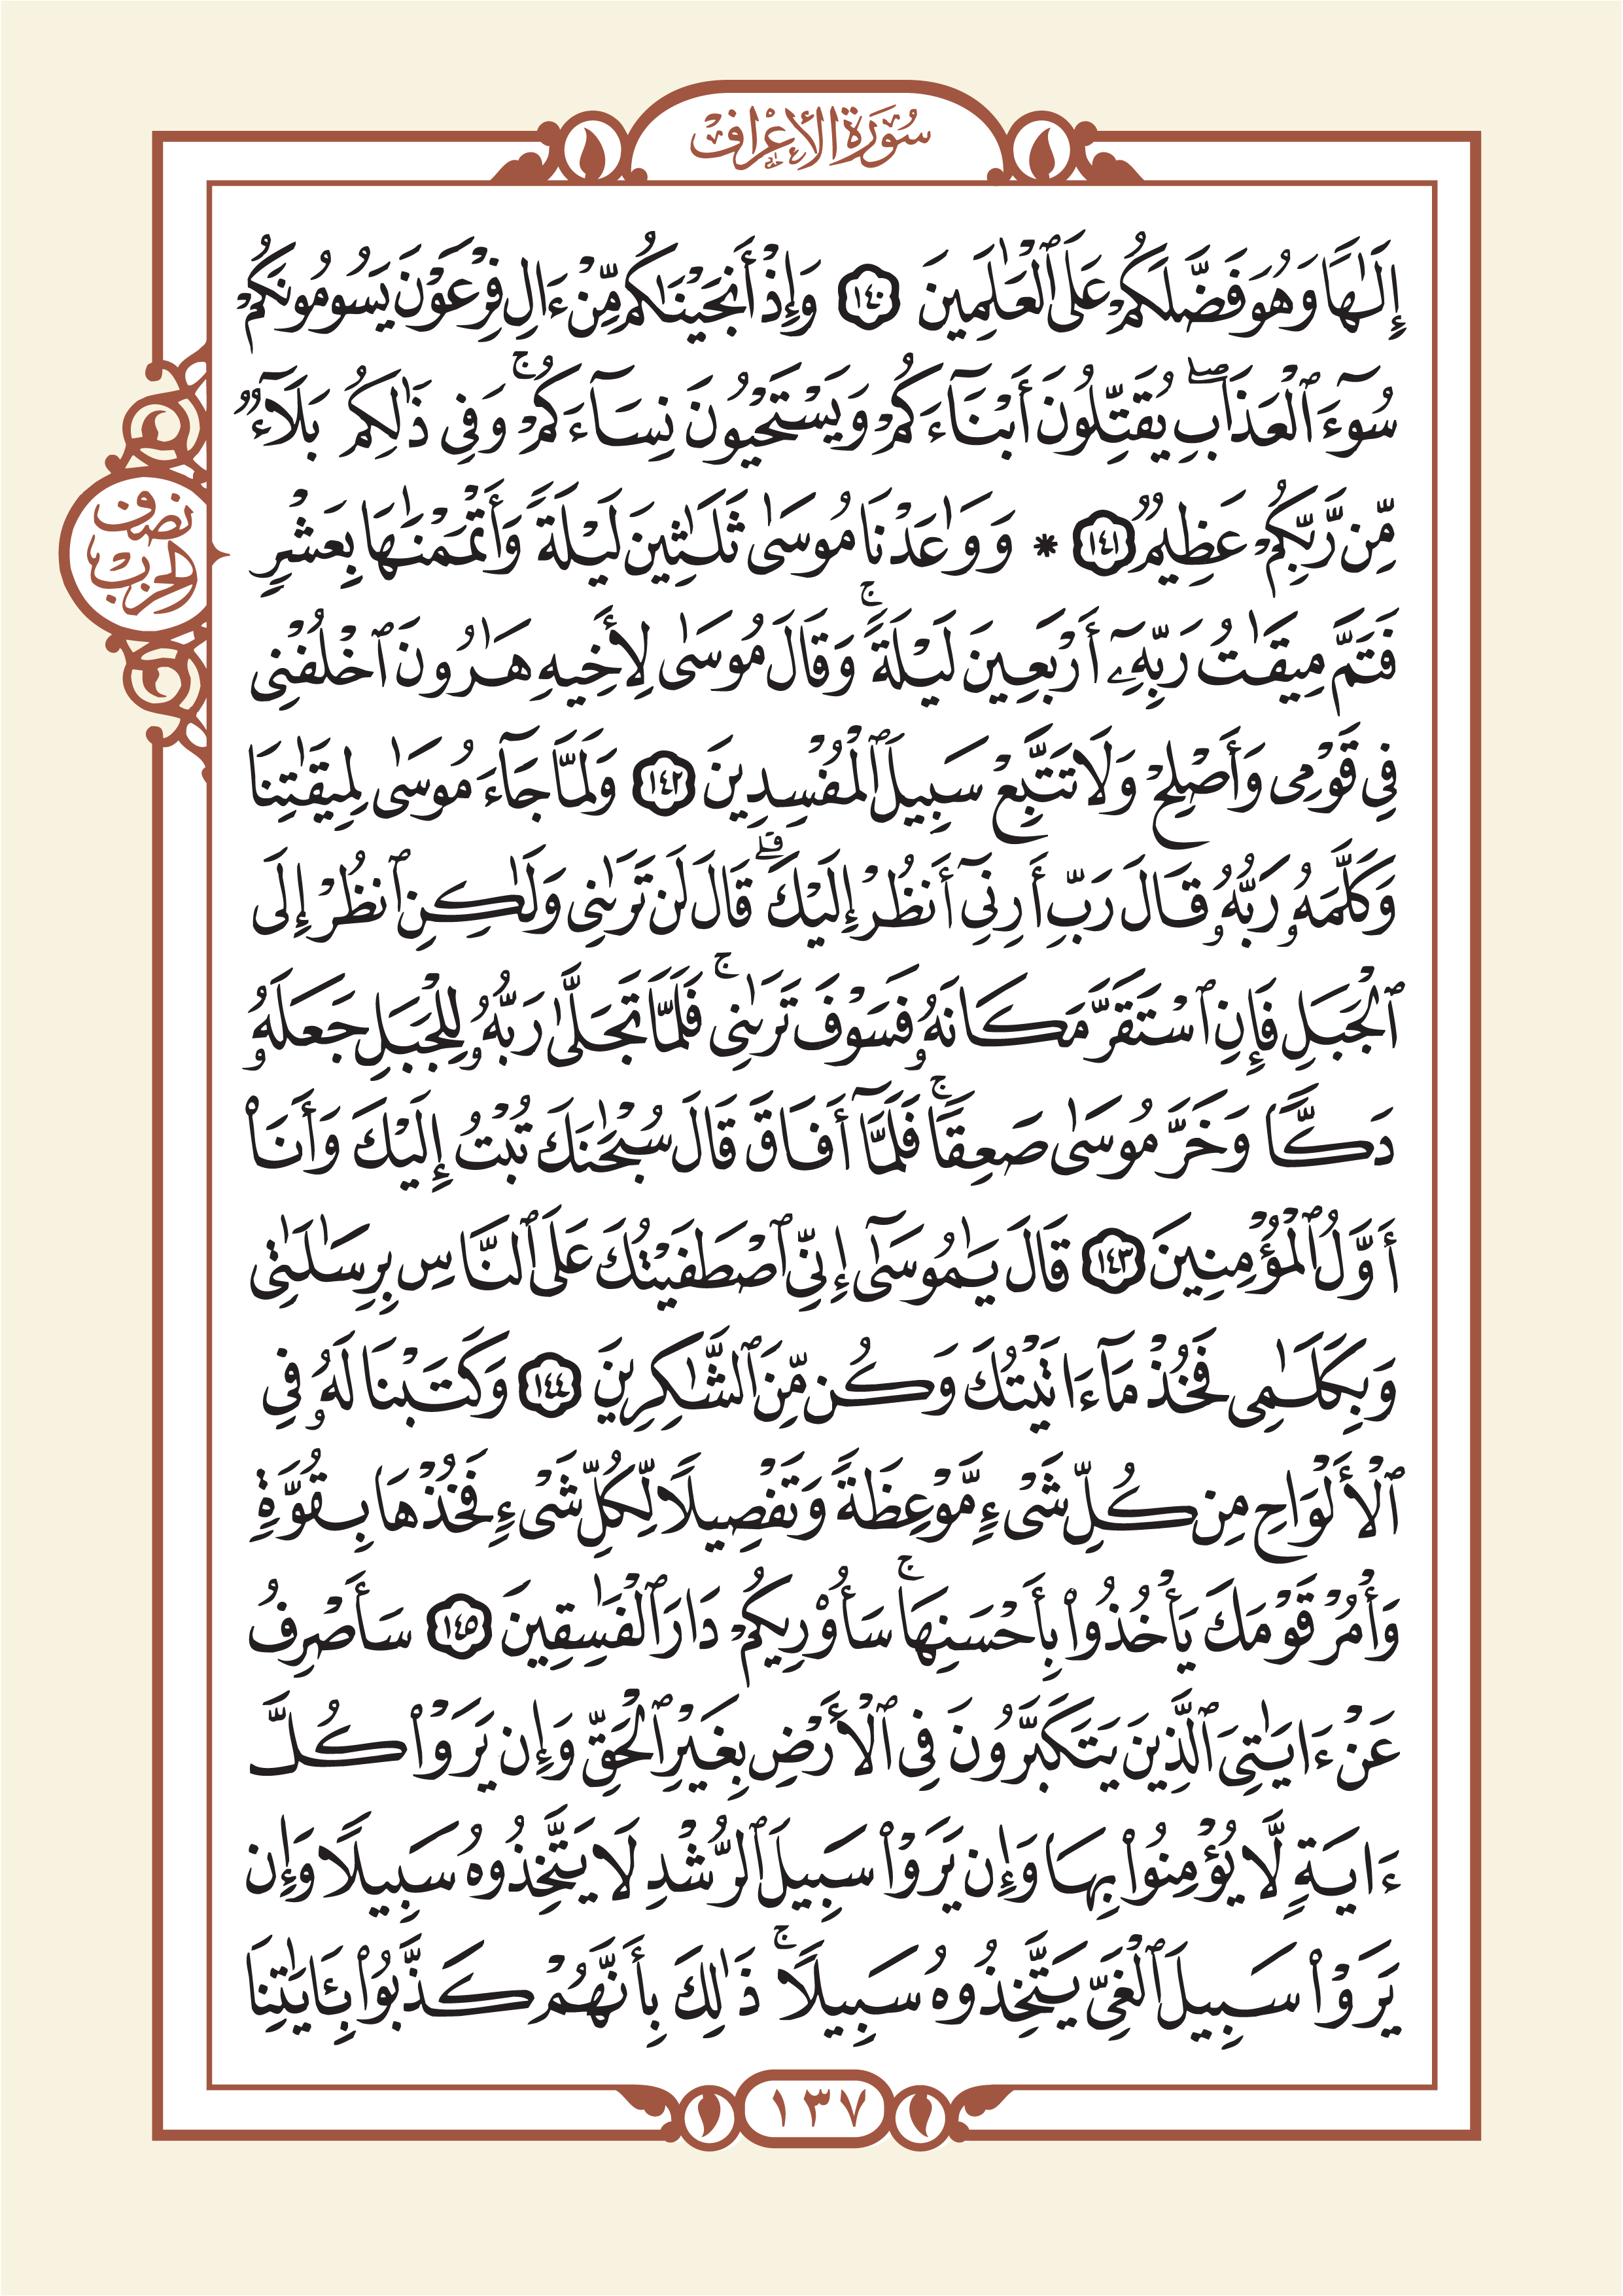 سُورَةُ الأَعْرَاف
إِلَٰهًا وَهُوَ فَضَّلَكُمْ عَلَى ٱلْعَٰلَمِينَ ١٤٠ وَإِذْ أَنجَيْنَٰكُم مِّنْ ءَالِ فِرْعَوْنَ يَسُومُونَكُمْ
سُوٓءَ ٱلْعَذَابِۖ يُقَتِّلُونَ أَبْنَآءَكُمْ وَيَسْتَحْيُونَ نِسَآءَكُمْۚ وَفِى ذَٰلِكُم بَلَآءٌ
مِّن رَّبِّكُمْ عَظِيمٌ ١٤١ * وَوَٰعَدْنَا مُوسَىٰ ثَلَٰثِينَ لَيْلَةً وَأَتْمَمْنَٰهَا بِعَشْرٍ
نصف
الحزب
فَتَمَّ مِيقَٰتُ رَبِّهِۦٓ أَرْبَعِينَ لَيْلَةًۚ وَقَالَ مُوسَىٰ لِأَخِيهِ هَٰرُونَ ٱخْلُفْنِى
فِى قَوْمِى وَأَصْلِحْ وَلَا تَتَّبِعْ سَبِيلَ ٱلْمُفْسِدِينَ ١٤٢ وَلَمَّا جَآءَ مُوسَىٰ لِمِيقَٰتِنَا
وَكَلَّمَهُۥ رَبُّهُۥ قَالَ رَبِّ أَرِنِىٓ أَنظُرْ إِلَيْكَۗ قَالَ لَن تَرَىٰنِى وَلَٰكِنِ ٱنظُرْ إِلَى
ٱلْجَبَلِ فَإِنِ ٱسْتَقَرَّ مَكَانَهُۥ فَسَوْفَ تَرَىٰنِىۚ فَلَمَّا تَجَلَّىٰ رَبُّهُۥ لِلْجَبَلِ جَعَلَهُۥ
دَكًّا وَخَرَّ مُوسَىٰ صَعِقًاۚ فَلَمَّآ أَفَاقَ قَالَ سُبْحَٰنَكَ تُبْتُ إِلَيْكَ وَأَنَا۠
أَوَّلُ ٱلْمُؤْمِنِينَ ١٤٣ قَالَ يَٰمُوسَىٰٓ إِنِّى ٱصْطَفَيْتُكَ عَلَى ٱلنَّاسِ بِرِسَٰلَٰتِى
وَبِكَلَٰمِى فَخُذْ مَآ ءَاتَيْتُكَ وَكُن مِّنَ ٱلشَّٰكِرِينَ ١٤٤ وَكَتَبْنَا لَهُۥ فِى
ٱلْأَلْوَاحِ مِن كُلِّ شَىْءٍ مَّوْعِظَةً وَتَفْصِيلًا لِّكُلِّ شَىْءٍ فَخُذْهَا بِقُوَّةٍ
وَأْمُرْ قَوْمَكَ يَأْخُذُوا۟ بِأَحْسَنِهَاۚ سَأُو۟رِيكُمْ دَارَ ٱلْفَٰسِقِينَ ١٤٥ سَأَصْرِفُ
عَنْ ءَايَٰتِىَ ٱلَّذِينَ يَتَكَبَّرُونَ فِى ٱلْأَرْضِ بِغَيْرِ ٱلْحَقِّ وَإِن يَرَوْا۟ كُلَّ
ءَايَةٍ لَّا يُؤْمِنُوا۟ بِهَا وَإِن يَرَوْا۟ سَبِيلَ ٱلرُّشْدِ لَا يَتَّخِذُوهُ سَبِيلًا وَإِن
يَرَوْا۟ سَبِيلَ ٱلْغَىِّ يَتَّخِذُوهُ سَبِيلًاۚ ذَٰلِكَ بِأَنَّهُمْ كَذَّبُوا۟ بِـَٔايَٰتِنَا
١٣٧